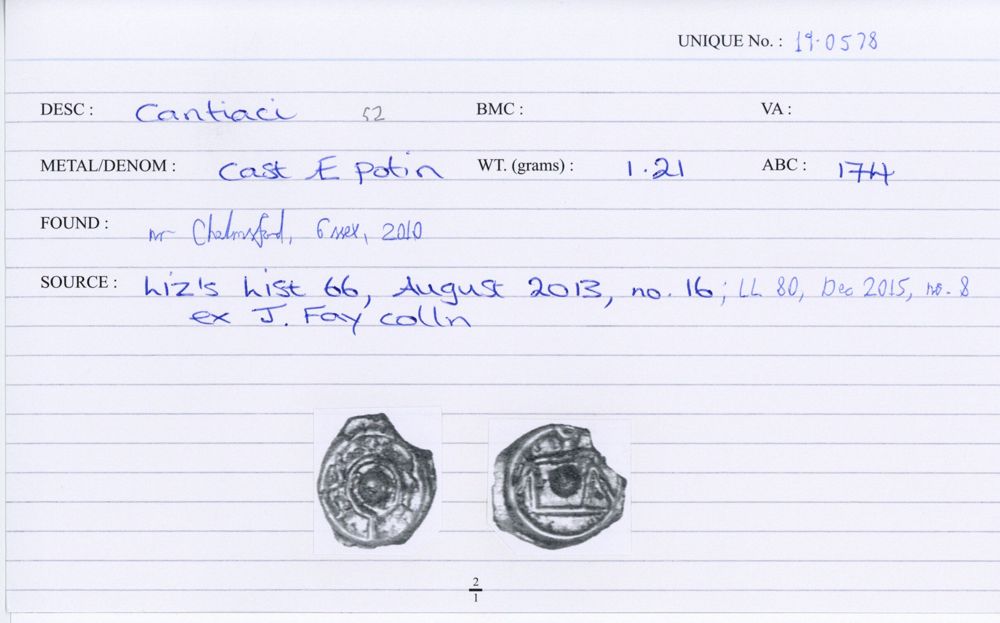 UNIQUE No. : 19.0578
DESC : Cantiaci 52 BMC : VA :
METAL/DENOM : Cast Æ potin WT. (grams) : 1.21 ABC : 174
FOUND : nr Chelmsford, Essex, 2010
SOURCE : Liz's List 66, August 2013, no. 16; LL 80, Dec 2015, no. 8
ex J. Fay colln
2
1